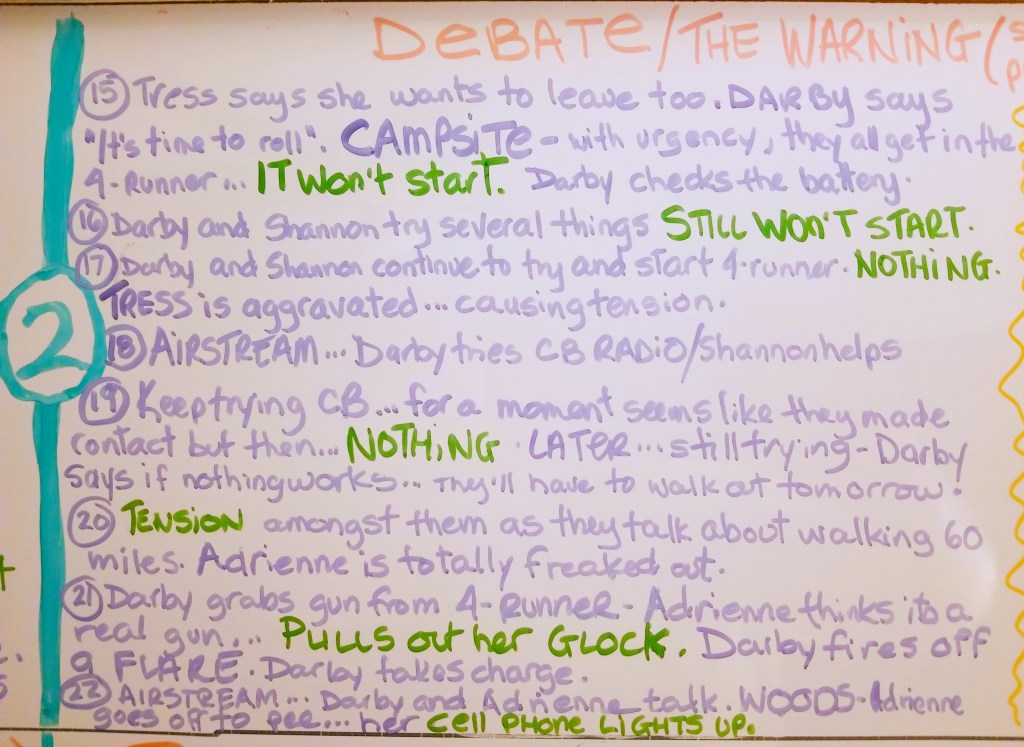 DEBATE/THE WARNING (
15 Tress says she wants to leave too. DARBY says
"It's time to roll". CAMPSITE - with urgency, they all get in the
4-Runner... IT won't start. Darby checks the battery.
16 Darby and Shannon try several things STILL WON'T START.
17 Darby and Shannon continue to try and start 4-runner. NOTHING.
TRESS is aggravated... causing tension.
2
18 AIRSTREAM... Darby tries CB RADIO/Shannon helps
19 Keep trying CB... for a moment seems like they made
contact but then... NOTHING. LATER... still trying - Darby
says if nothing works... They'll have to walk out tomorrow!
20 TENSION amongst them as they talk about walking 60
miles. Adrienne is totally freaked out.
21 Darby grabs gun from 4-Runner - Adrienne thinks its a
real gun... PULLS out her GLOCK. Darby fires off
a FLARE. Darby takes charge.
22 AIRSTREAM... Darby and Adrienne talk. WOODS - Adrienne
goes off to pee... her cell PHONE LIGHTS UP.